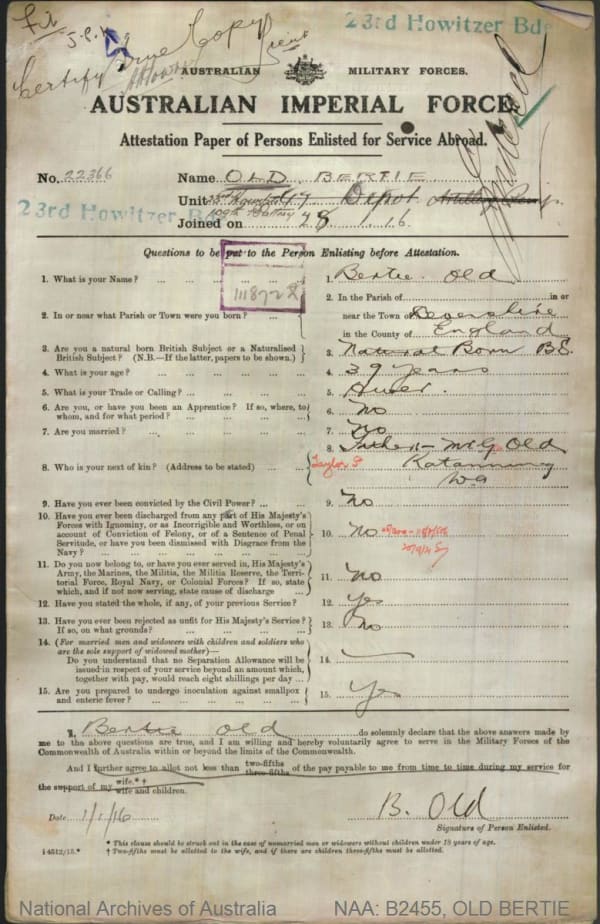 Fit
J.C.H.
Certify True Copy
23rd Howitzer Bde
AUSTRALIAN MILITARY FORCES.
AUSTRALIAN IMPERIAL FORCE.
Attestation Paper of Persons Enlisted for Service Abroad.
No. 22366 Name OLD BERTIE
Unit Depot
23rd Howitzer Bde
Joined on 28.1.16.
Questions to be put to the Person Enlisting before Attestation.
1. What is your Name? ... 1. Bertie Old
2. In or near what Parish or Town were you born? ... 2. In the Parish of in or
near the Town of Devonshire
in the County of England
3. Are you a natural born British Subject or a Naturalised
British Subject? (N.B.—If the latter, papers to be shown.) 3. Natural Born B.S.
4. What is your age? ... 4. 39 years
5. What is your Trade or Calling? ... 5.
6. Are you, or have you been an Apprentice? If so, where, to
whom, and for what period? ... 6. No
7. Are you married? ... 7. No
8. Who is your next of kin? (Address to be stated) ... 8. Father— Mr G Old
Taylor St Katanning
WA
9. Have you ever been convicted by the Civil Power? ... 9. No
10. Have you ever been discharged from any part of His Majesty's
Forces with Ignominy, or as Incorrigible and Worthless, or on
account of Conviction of Felony, or of a Sentence of Penal
Servitude, or have you been dismissed with Disgrace from the
Navy? ... 10. No
11. Do you now belong to, or have you ever served in, His Majesty's
Army, the Marines, the Militia, the Militia Reserve, the Terri-
torial Force, Royal Navy, or Colonial Forces? If so, state
which, and if not now serving, state cause of discharge 11. No
12. Have you stated the whole, if any, of your previous Service? 12. Yes
13. Have you ever been rejected as unfit for His Majesty's Service?
If so, on what grounds? ... 13. No
14. (For married men and widowers with children and soldiers who
are the sole support of widowed mother)—
Do you understand that no Separation Allowance will be
issued in respect of your service beyond an amount which,
together with pay, would reach eight shillings per day ... 14. —
15. Are you prepared to undergo inoculation against smallpox
and enteric fever? ... 15. Yes
I, Bertie Old do solemnly declare that the above answers made by
me to the above questions are true, and I am willing and hereby voluntarily agree to serve in the Military Forces of the
Commonwealth of Australia within or beyond the limits of the Commonwealth.
And I further agree to allot not less than two-fifths three-fifths of the pay payable to me from time to time during my service for
the support of my wife.* † wife and children.
Date 1/1/16 B. Old
Signature of Person Enlisted.
* This clause should be struck out in the case of unmarried men or widowers without children under 18 years of age.
† Two-fifths must be allotted to the wife, and if there are children three-fifths must be allotted.
National Archives of Australia NAA: B2455, OLD BERTIE